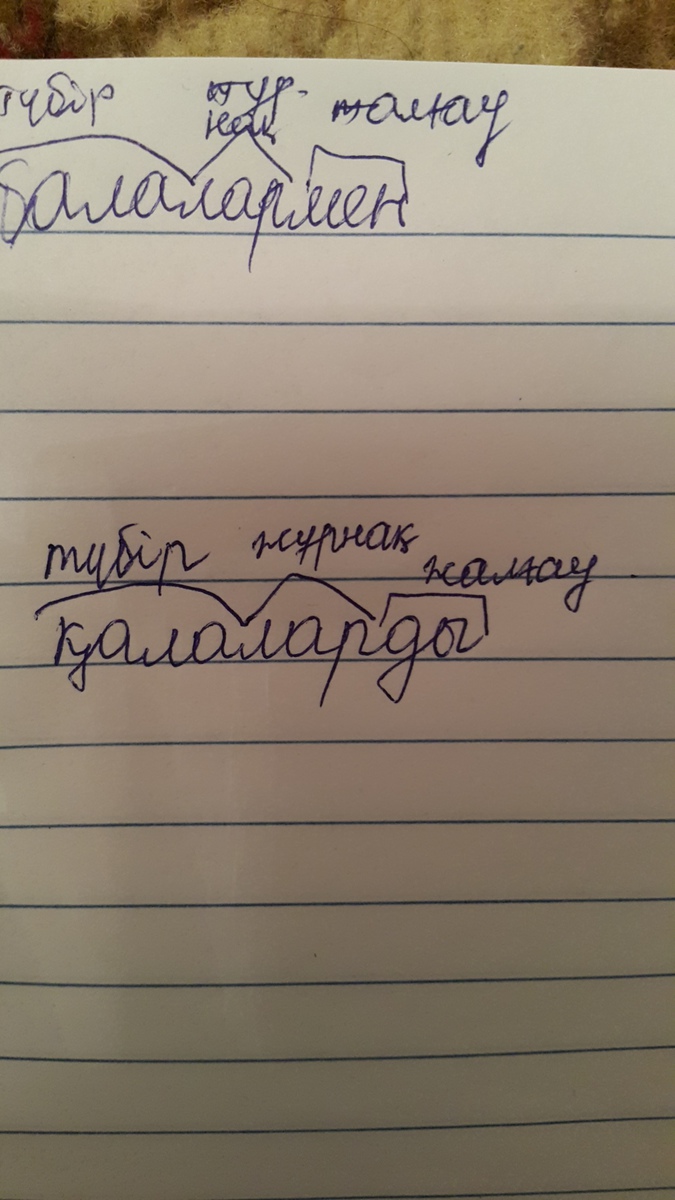 түбір жұр- жалғау
нақ
балалармен
түбір жұрнақ жалғау
қалаларды